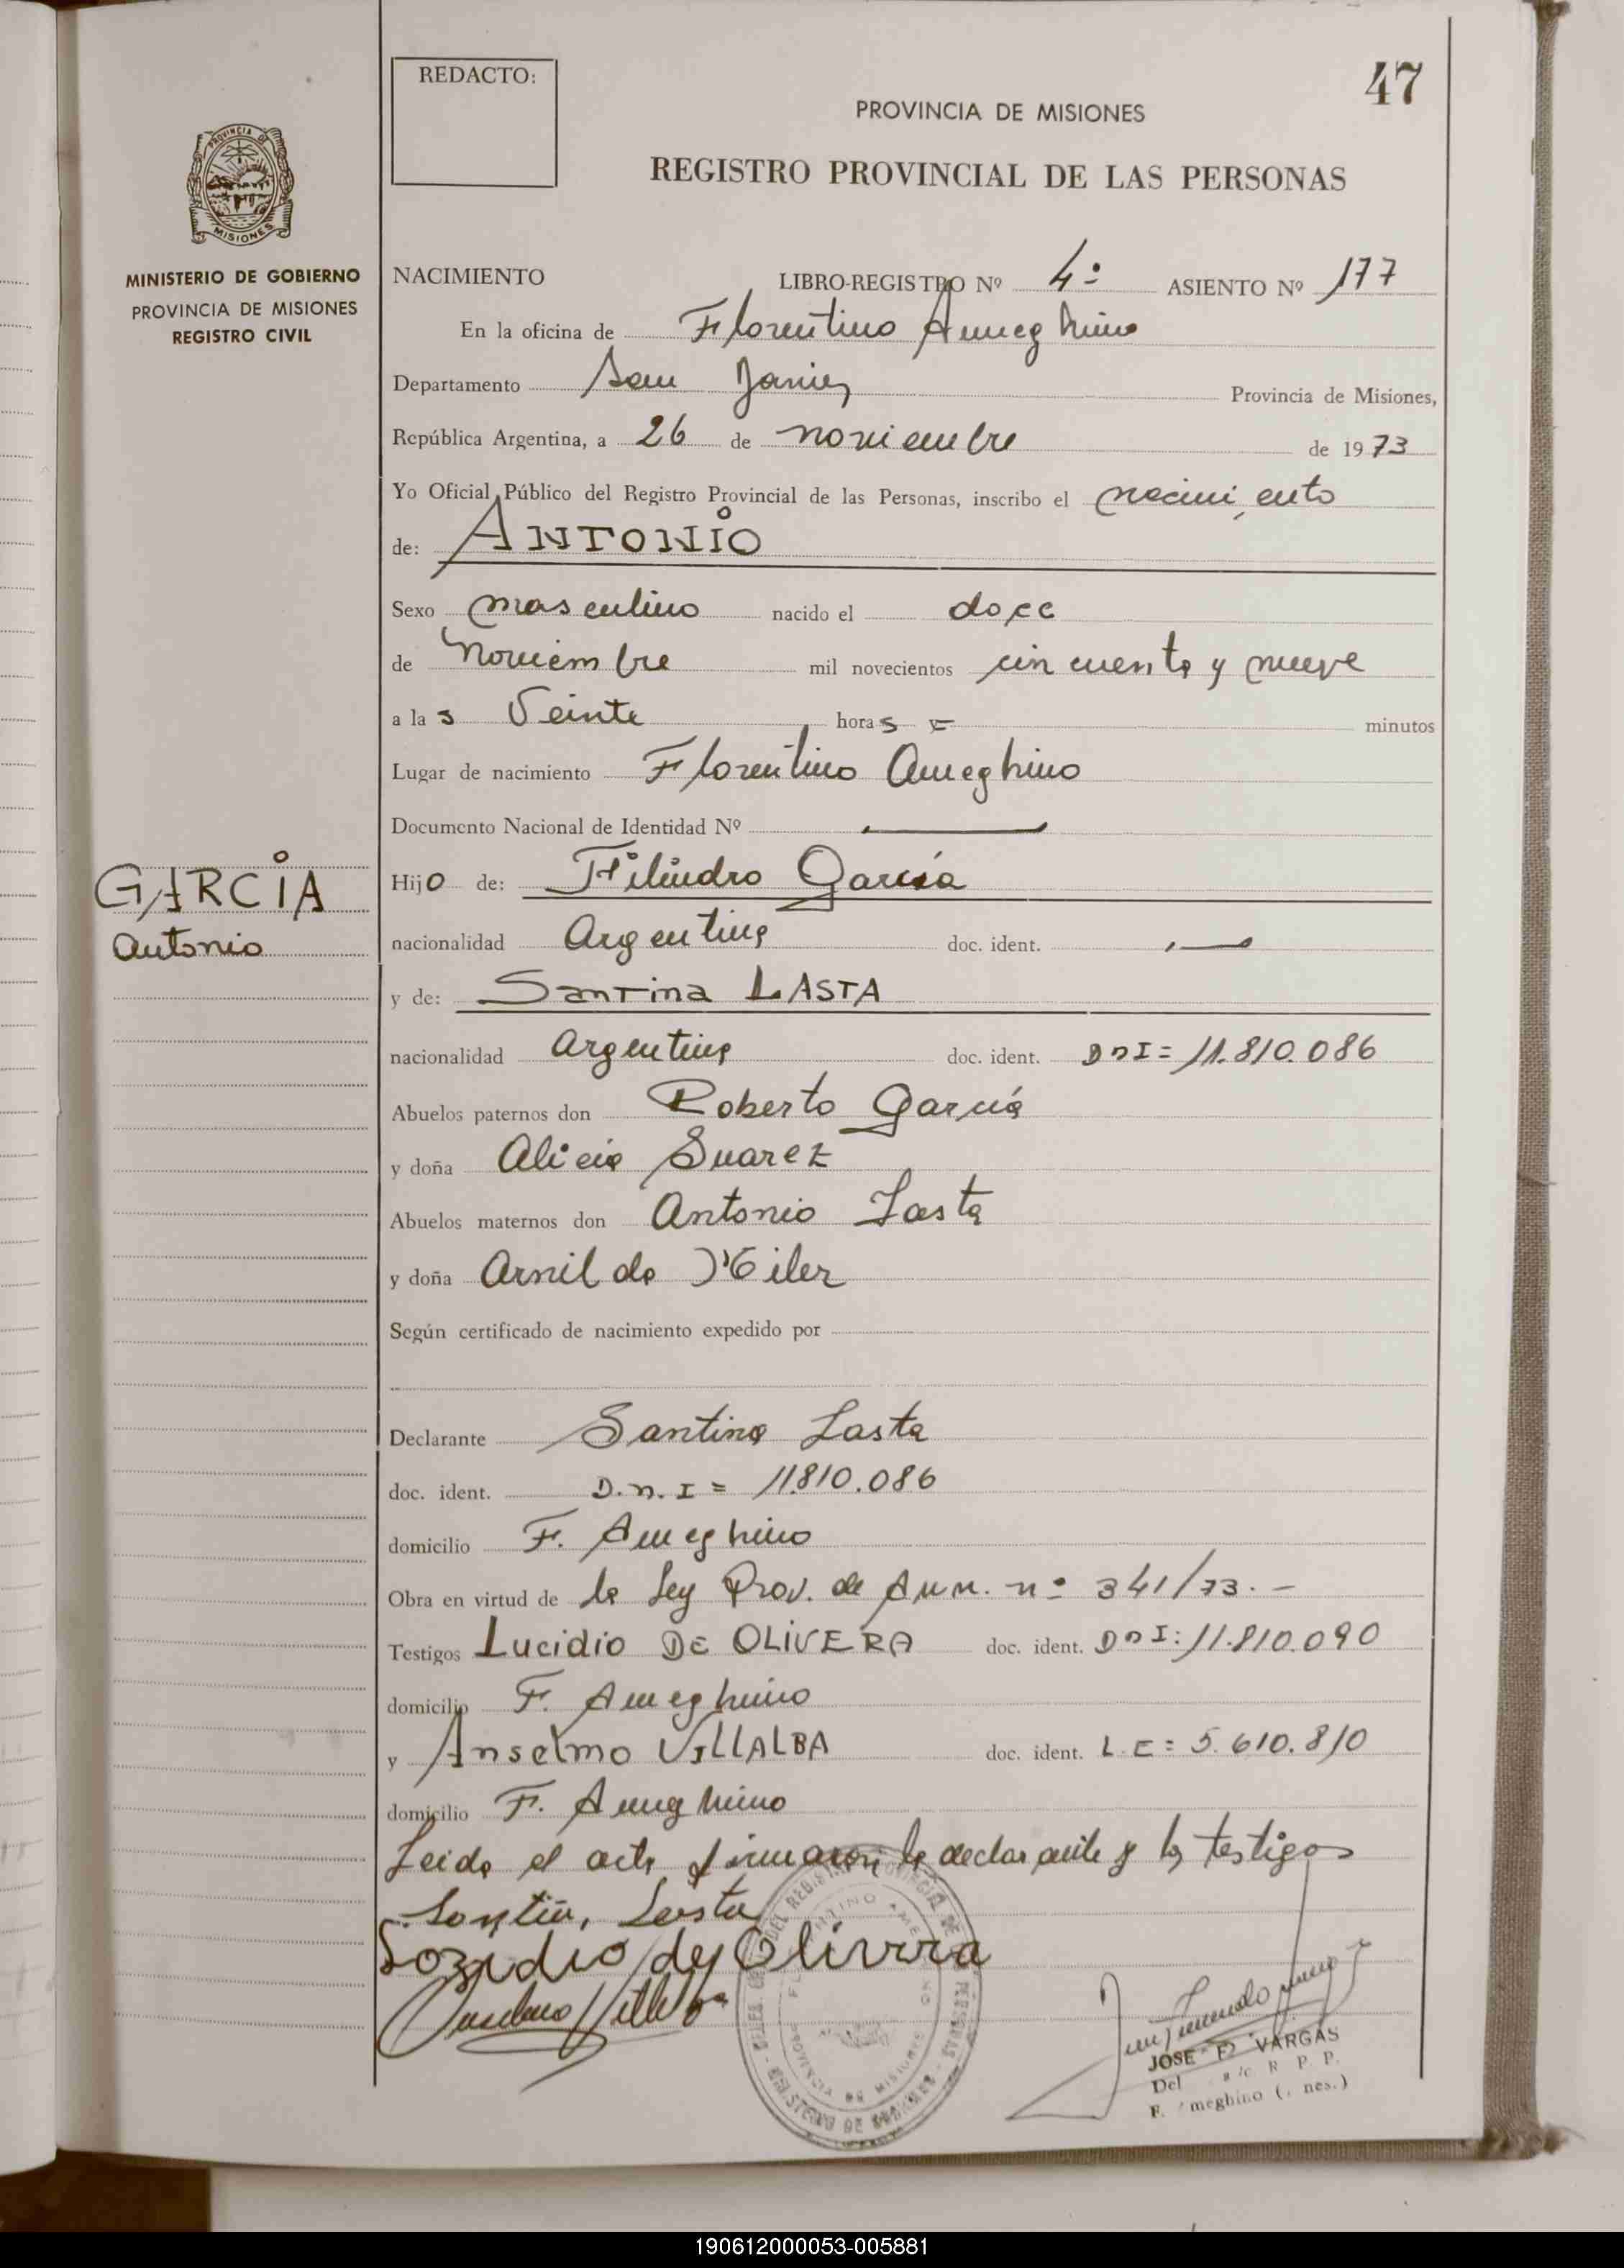 47
REDACTO:
PROVINCIA DE MISIONES
REGISTRO PROVINCIAL DE LAS PERSONAS
PROVINCIA DE
MISIONES
MINISTERIO DE GOBIERNO
PROVINCIA DE MISIONES
REGISTRO CIVIL
NACIMIENTO LIBRO-REGISTRO Nº 4º ASIENTO Nº 177
En la oficina de Florentino Ameghino
Departamento San Javier Provincia de Misiones,
República Argentina, a 26 de noviembre de 1973
Yo Oficial Público del Registro Provincial de las Personas, inscribo el nacimiento
de: ANTONIO
Sexo masculino nacido el doce
de Noviembre mil novecientos cincuenta y nueve
a las Veinte horas = minutos
Lugar de nacimiento Florentino Ameghino
Documento Nacional de Identidad Nº —
GARCIA
Antonio
Hijo de: Filindro García
nacionalidad Argentina doc. ident. —
y de: Santina LASTA
nacionalidad argentina doc. ident. DNI= 11.810.086
Abuelos paternos don Roberto García
y doña Alicia Suarez
Abuelos maternos don Antonio Lasta
y doña Arnilda
Según certificado de nacimiento expedido por
Declarante Santina Lasta
doc. ident. D.n.I= 11.810.086
domicilio F. Ameghino
Obra en virtud de la Ley Prov. de Amn. nº 341/73.-
Testigos Lucidio DE OLIVERA doc. ident. DNI: 11.810.090
domicilio F. Ameghino
y Anselmo VILLALBA doc. ident. L.E= 5.610.810
domicilio F. Ameghino
Leida el acta firmaron la declarante y los testigos
Lasta
de Olivera
Anselmo Villalba
JOSE F. VARGAS
Del a/c R P P.
F. meghino ( nes.)
190612000053-005881